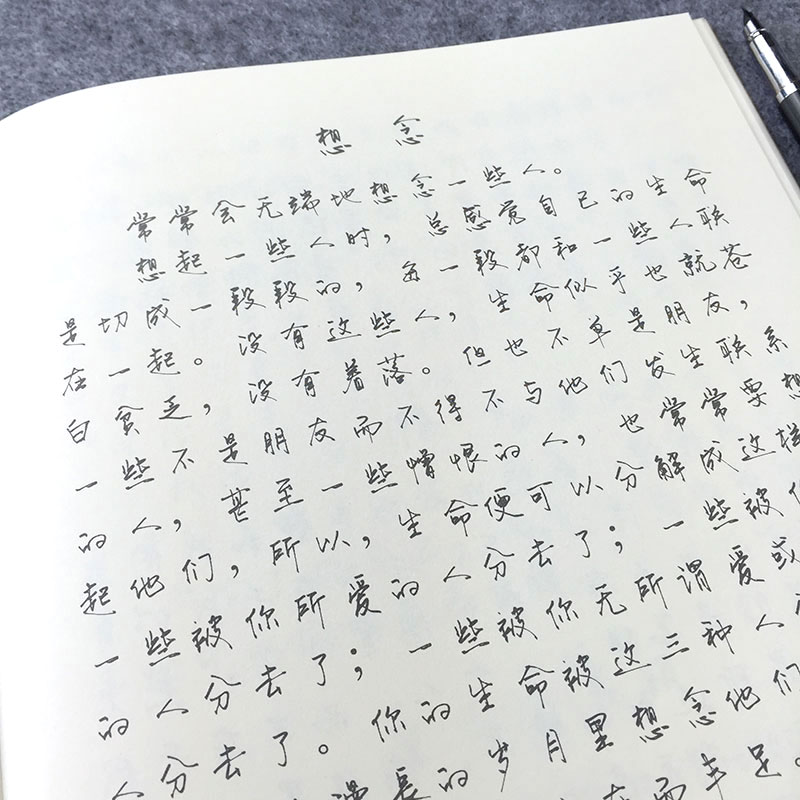 想念
常常会无端地想念一些人。
想起一些人时，总感觉自己的生命
是切成一段段的，每一段都和一些人联
在一起。没有这些人，生命似乎也就苍
白贫乏，没有着落。但也不单是朋友，
一些不是朋友而不得不与他们发生联系
的人，甚至一些憎恨的人，也常常要想
起他们，所以，生命便可以分解成这样
一些被你所爱的人分去了；一些被你
的人分去了；一些被你无所谓爱或
人分去了。你的生命被这三种人
漫长的岁月里想念他们
而丰足。